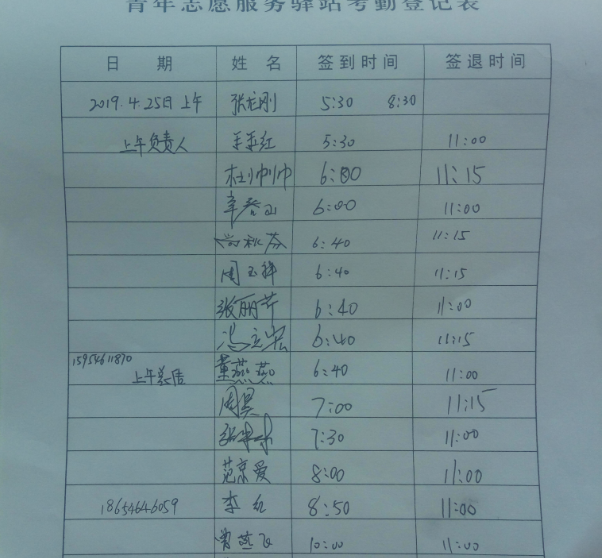 青年志愿服务驿站考勤登记表
日 期 姓 名 签到时间 签退时间
2019.4.25日上午 张龙刚 5:30 8:30
上午负责人 5:30 11:00
杜帅帅 6:00 11:15
6:00 11:00
6:40 11:15
周玉祥 6:40 11:15
张丽芹 6:40 11:00
冯立宏 6:40 11:15
15954611870
上午 董燕燕 6:40 11:00
周昊 7:00 11:15
7:30 11:00
范京爱 8:00 11:00
18654646059 李红 8:50 11:00
曾燕飞 10:00 11:00